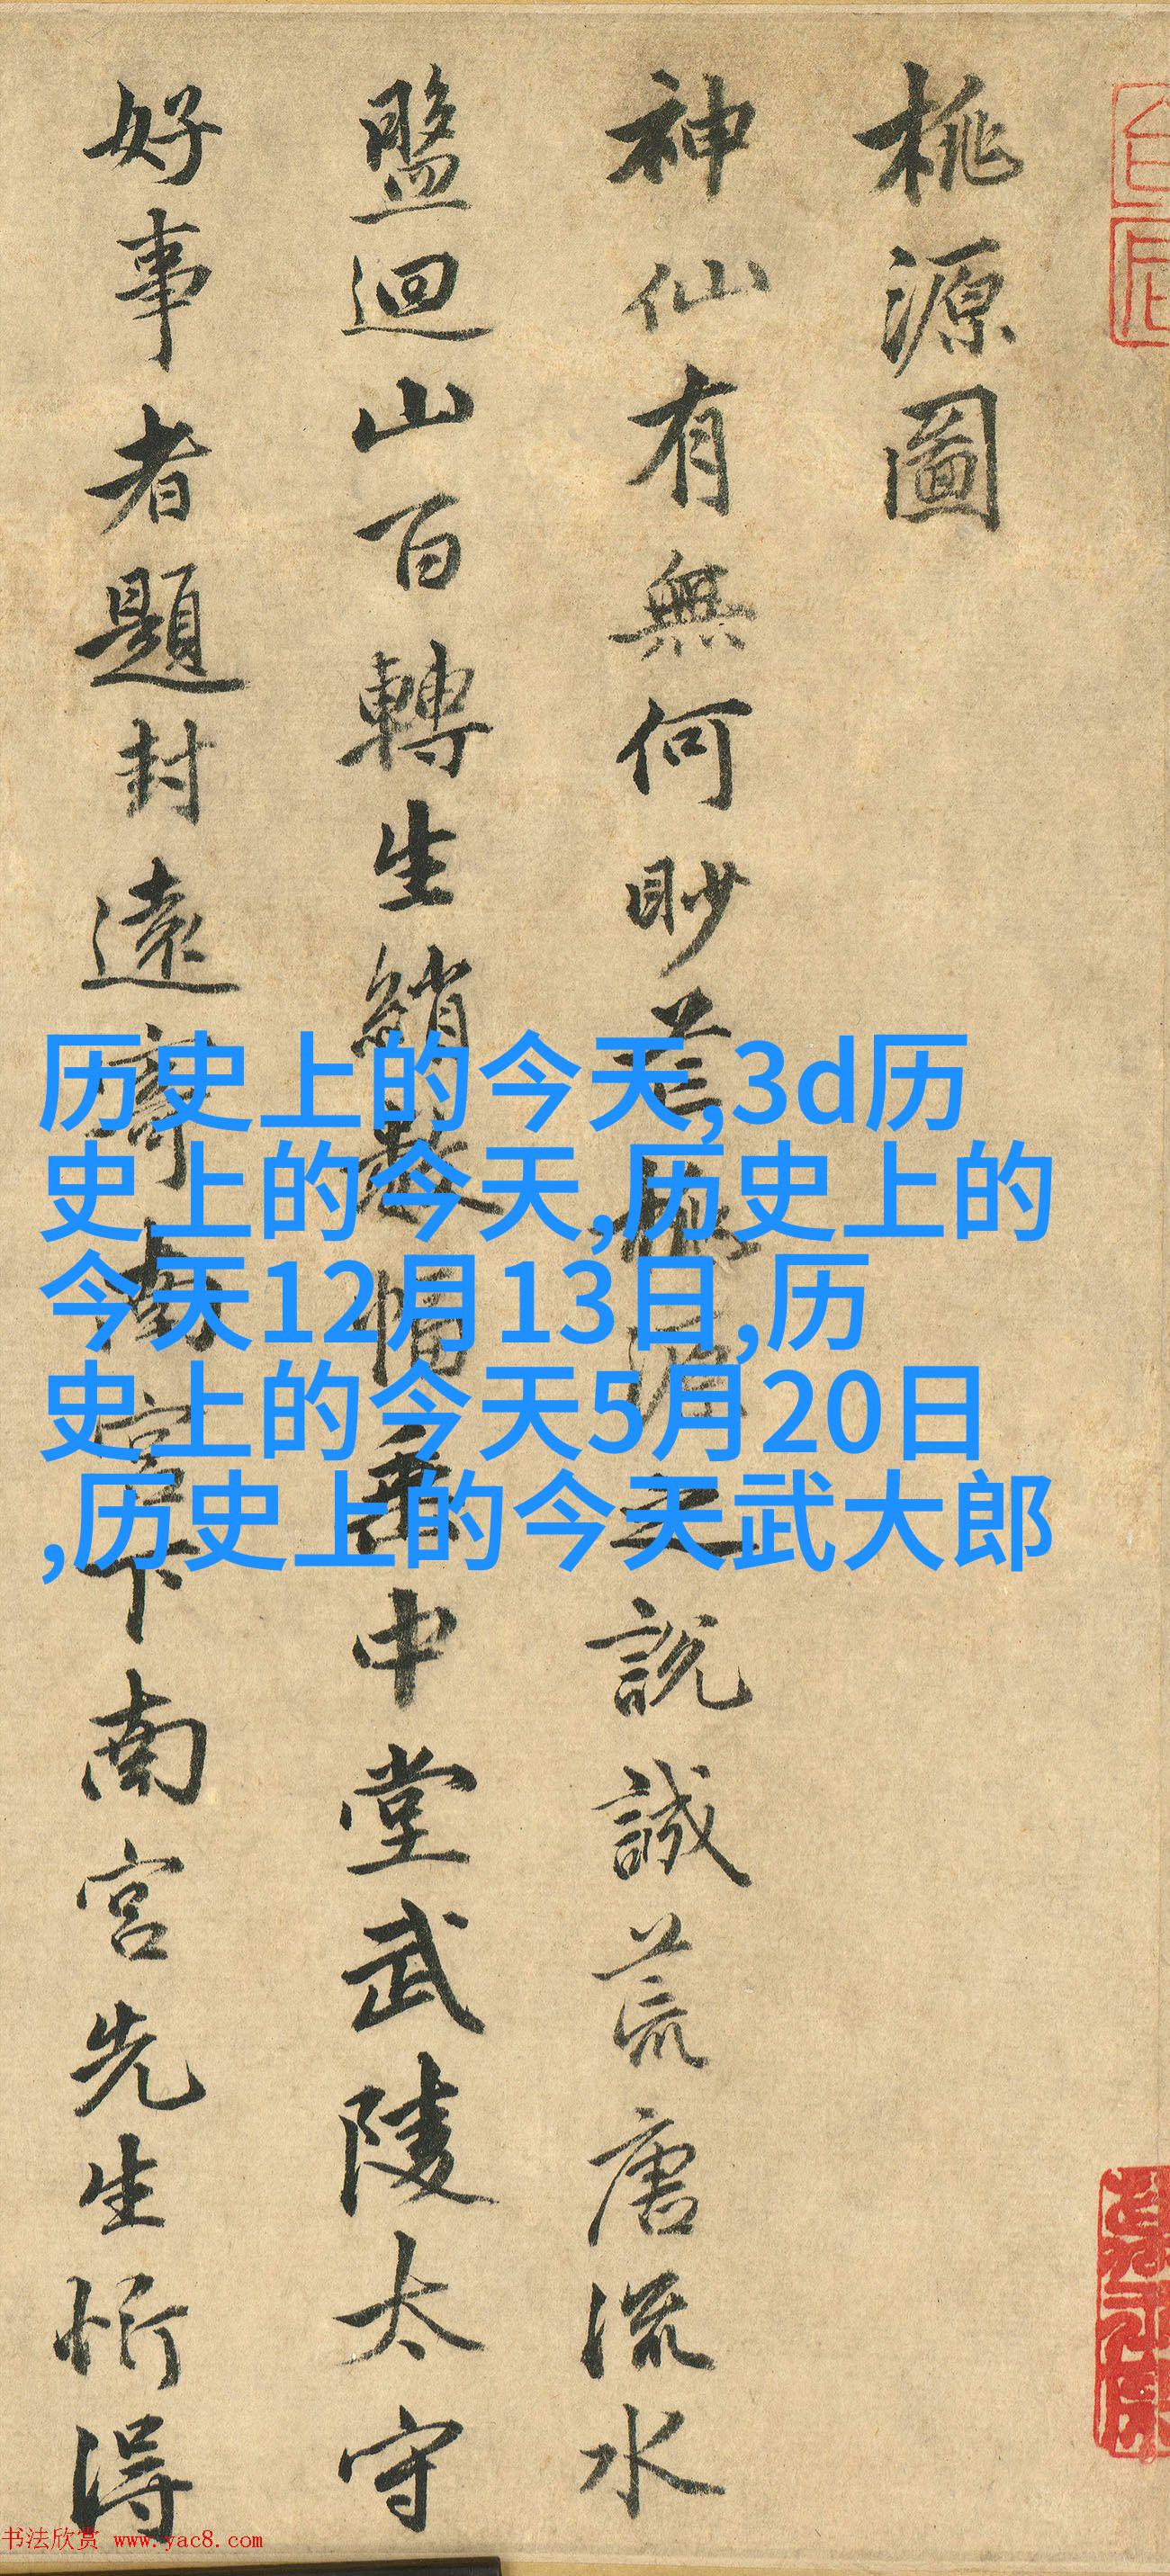 桃源圖
神仙有無何眇芒桃源之說誠荒唐流水
盤迴山百轉生綃數幅垂中堂武陵太守
好事者題封遠寄南宮下南宮先生忻得
历史上的今天,3d历
史上的今天,历史上的
今天12月13日,历
史上的今天5月20日
,历史上的今天武大郎
书法欣赏 www.yac8.com